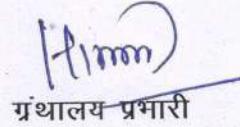 ग्रंथालय प्रभारी